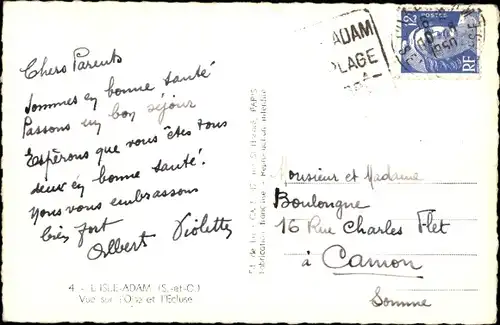 Chers Parents
Sommes en bonne santé
Passons un bon séjour
Espérons que vous êtes tous
deux en bonne santé.
Nous vous embrassons
bien fort
Albert Violette
4 - L'ISLE-ADAM (S.-et-O.)
Vue sur l'Oise et l'Ecluse
PARIS
Fabrication française - Reproduction interdite
ADAM
PLAGE
12F
POSTES
RF
1950
Monsieur et Madame
Boulongne
16 Rue Charles Flet
à Camon
Somme